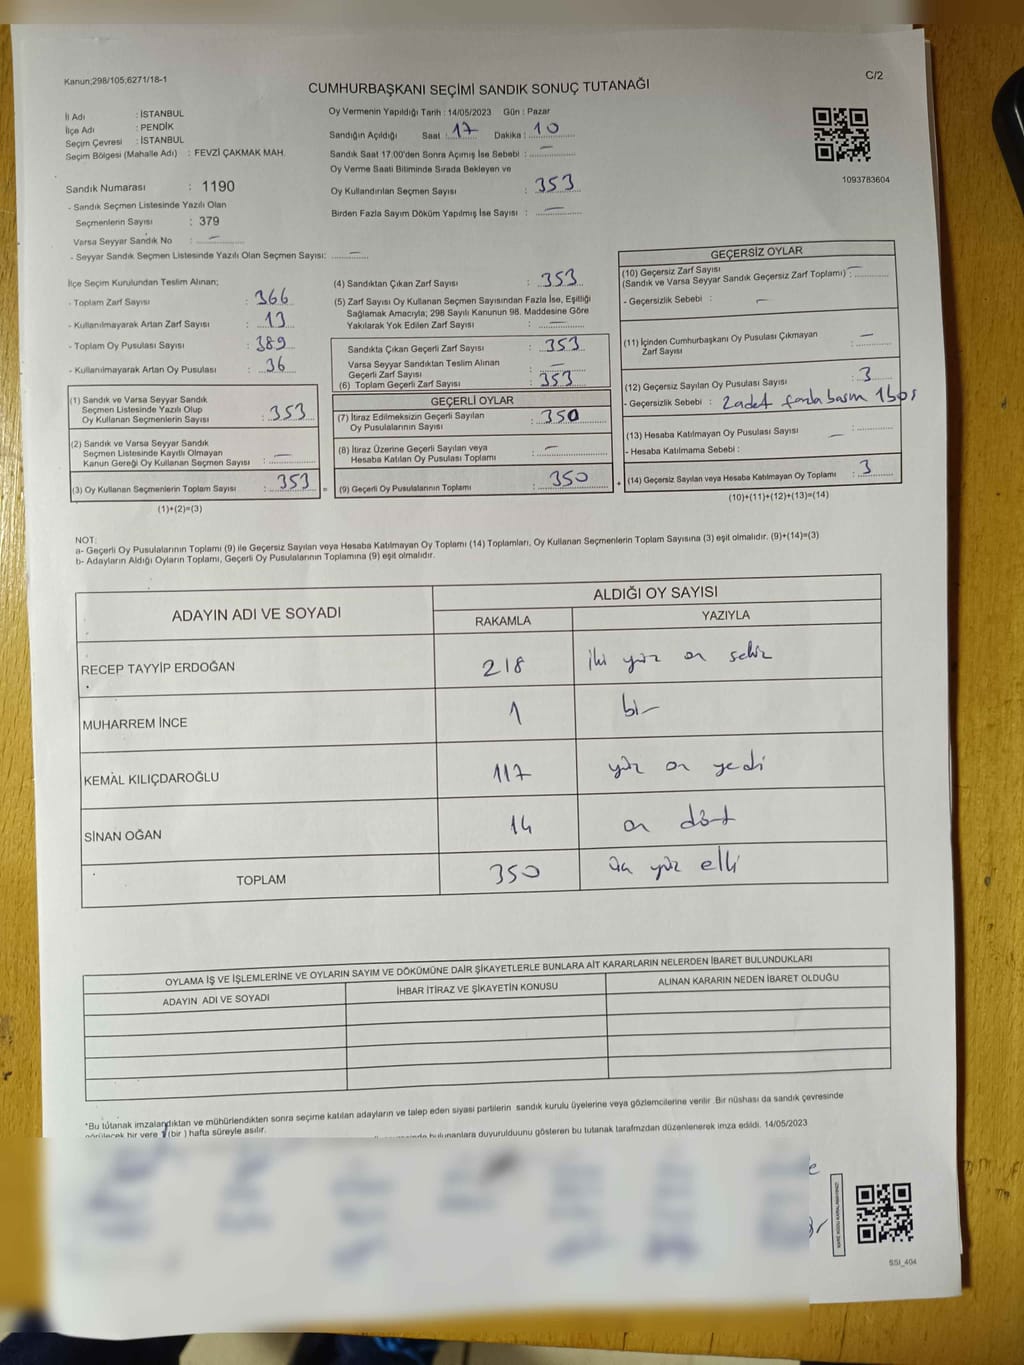 Kanun;298/105;6271/18-1
C/2
CUMHURBAŞKANI SEÇİMİ SANDIK SONUÇ TUTANAĞI
İl Adı : İSTANBUL
İlçe Adı : PENDİK
Seçim Çevresi : İSTANBUL
Seçim Bölgesi (Mahalle Adı) : FEVZİ ÇAKMAK MAH.
Sandık Numarası : 1190
- Sandık Seçmen Listesinde Yazılı Olan
Seçmenlerin Sayısı : 379
Varsa Seyyar Sandık No : —
- Seyyar Sandık Seçmen Listesinde Yazılı Olan Seçmen Sayısı: —
Oy Vermenin Yapıldığı Tarih : 14/05/2023 Gün : Pazar
Sandığın Açıldığı Saat : 17 Dakika : 10
Sandık Saat 17.00'den Sonra Açımış İse Sebebi : —
Oy Verme Saati Bitiminde Sırada Bekleyen ve
Oy Kullandırılan Seçmen Sayısı : 353
Birden Fazla Sayım Döküm Yapılmış İse Sayısı : —
1093783604
İlçe Seçim Kurulundan Teslim Alınan;
- Toplam Zarf Sayısı : 366
- Kullanılmayarak Artan Zarf Sayısı : 13
- Toplam Oy Pusulası Sayısı : 389
- Kullanılmayarak Artan Oy Pusulası : 36
(1) Sandık ve Varsa Seyyar Sandık
Seçmen Listesinde Yazılı Olup
Oy Kullanan Seçmenlerin Sayısı : 353
(2) Sandık ve Varsa Seyyar Sandık
Seçmen Listesinde Kayıtlı Olmayan
Kanun Gereği Oy Kullanan Seçmen Sayısı : —
(3) Oy Kullanan Seçmenlerin Toplam Sayısı : 353 =
(1)+(2)=(3)
(4) Sandıktan Çıkan Zarf Sayısı : 353
(5) Zarf Sayısı Oy Kullanan Seçmen Sayısından Fazla İse, Eşitliği
Sağlamak Amacıyla; 298 Sayılı Kanunun 98. Maddesine Göre
Yakılarak Yok Edilen Zarf Sayısı : —
Sandıkta Çıkan Geçerli Zarf Sayısı : 353
Varsa Seyyar Sandıktan Teslim Alınan
Geçerli Zarf Sayısı : —
(6) Toplam Geçerli Zarf Sayısı : 353
GEÇERLİ OYLAR
(7) İtiraz Edilmeksizin Geçerli Sayılan
Oy Pusulalarının Sayısı : 350
(8) İtiraz Üzerine Geçerli Sayılan veya
Hesaba Katılan Oy Pusulası Toplamı : —
(9) Geçerli Oy Pusulalarının Toplamı : 350 +
GEÇERSİZ OYLAR
(10) Geçersiz Zarf Sayısı
(Sandık ve Varsa Seyyar Sandık Geçersiz Zarf Toplamı) : —
- Geçersizlik Sebebi : —
(11) İçinden Cumhurbaşkanı Oy Pusulası Çıkmayan
Zarf Sayısı : —
(12) Geçersiz Sayılan Oy Pusulası Sayısı : 3
- Geçersizlik Sebebi : 2 adet fazla basım 1 boş
(13) Hesaba Katılmayan Oy Pusulası Sayısı : —
- Hesaba Katılmama Sebebi :
(14) Geçersiz Sayılan veya Hesaba Katılmayan Oy Toplamı : 3
(10)+(11)+(12)+(13)=(14)
NOT:
a- Geçerli Oy Pusulalarının Toplamı (9) ile Geçersiz Sayılan veya Hesaba Katılmayan Oy Toplamı (14) Toplamları, Oy Kullanan Seçmenlerin Toplam Sayısına (3) eşit olmalıdır. (9)+(14)=(3)
b- Adayların Aldığı Oyların Toplamı, Geçerli Oy Pusulalarının Toplamına (9) eşit olmalıdır.
ADAYIN ADI VE SOYADI
ALDIĞI OY SAYISI
RAKAMLA YAZIYLA
RECEP TAYYİP ERDOĞAN 218 iki yüz on sekiz
MUHARREM İNCE 1 bir
KEMAL KILIÇDAROĞLU 117 yüz on yedi
SİNAN OĞAN 14 on dört
TOPLAM 350 üç yüz elli
OYLAMA İŞ VE İŞLEMLERİNE VE OYLARIN SAYIM VE DÖKÜMÜNE DAİR ŞİKAYETLERLE BUNLARA AİT KARARLARIN NELERDEN İBARET BULUNDUKLARI
ADAYIN ADI VE SOYADI İHBAR İTİRAZ VE ŞİKAYETİN KONUSU ALINAN KARARIN NEDEN İBARET OLDUĞU
*Bu tutanak imzalandıktan ve mühürlendikten sonra seçime katılan adayların ve talep eden siyasi partilerin sandık kurulu üyelerine veya gözlemcilerine verilir. Bir nüshası da sandık çevresinde
görülecek bir yere 1 (bir ) hafta süreyle asılır.
bulunanlara duyurulduunu gösteren bu tutanak tarafmzdan düzenlenerek imza edildi. 14/05/2023
SSI_404